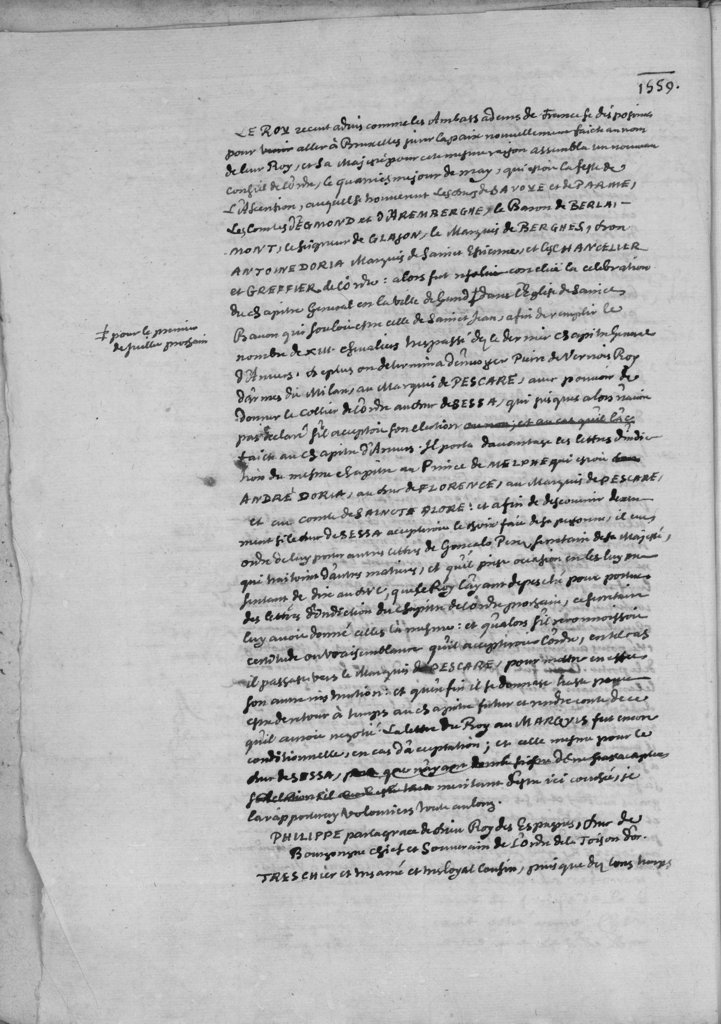 1559.
LE ROY receut advis comme les Ambassadeurs de France se disposoient
pour venir aller à Bruxelles jurer la paix nouvellement faicte au nom
de leur Roy, et sa Majesté pour ceste mesme raison assembla un nouveau
Conseil de l'Ordre, le quatriesme jour de may, qui estoit la feste de
L'Ascention, auquel se trouverent les Ducqs de SAVOYE et de PARME,
Les Comtes D'EGMOND et D'AREMBERGHE, le Baron de BERLAI-
MONT, le Seigneur de GLAJON, le Marquis de BERGHES, Don
ANTOINE DORIA Marquis de Sainct Estienne, et les CHANCELIER
et GREFFIER de l'Ordre: alors fut conclu la celebration
du chapitre General en la Ville de Gand ‡ dans l'Eglise de Sainct
‡ pour le premier
de juillet prochain
Bavon qui souloit estre celle de Sainct Jean, afin de remplir le
nombre de XIII. chevaliers trespassé dez le dernier Chapitre General
d'Anvers. et de plus on determina d'envoyer Pierre de Vernois Roy
d'armes du Milan, au Marquis de PESCARE, avec pouvoir de
donner le Collier de l'Ordre au Duc de SESSA, qui jusques alors n'avoit
pas declaré s'il acceptoit son election
faicte au chapitre d'Anvers. Il porta davantage les lettres d'indic-
tion du mesme chapitre au Prince de MELPHE qui estoit
ANDRÉ DORIA, au Duc de FLORENCE, au Marquis de PESCARE,
et au Comte de SAINCTA FLORE: et afin de descouvrir
si le Duc de SESSA accepteroit le de sa personne, il eut
ordre de luy porter autres lettres de Goncalo Perez secretaire de sa Majesté,
qui traitoient d'autres matieres, et qu'il prist occasion en les luy pre-
sentant de dire au DUC, que le Roy l'ayant depesché pour porter
des lettres d'indiction du chapitre de l'Ordre prochain, ce secretaire
luy avoit donné celles là mesmes: et qu'alors s'il recognoissoit
certitude ou vraisemblance qu'il accepteroit l'Ordre, en tel cas
il passast vers le Marquis de PESCARE, pour mettre en effect
son autre instruction: et qu'enfin il se donnast
de retour à temps au chapitre futur et rendre conte de ce
qu'il auroit negotié. La lettre du Roy au MARQUIS fut encor
conditionnelle, en cas d'acceptation; et celle mesme pour le
Duc de SESSA,
meritant d'estre ici couchée, je
la rapporteray volontiers tout au long.
PHILIPPE par la grace de Dieu Roy des Espagnes, Duc de
Bourgongne chief et Souverain de l'Ordre de la Toison d'or.
TRESCHIER et tresamé et tresloyal Cousin, puis que dez long temps